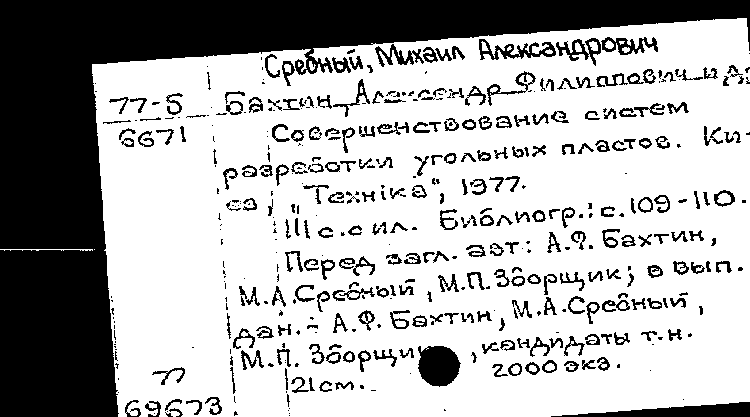 Сребный, Михаил Александрович
77-5 Бахтин, Александр Филиппович и др
6671 Совершенствование систем
разработки угольных пластов. Ки-
ев, „Технiка", 1977.
111 с.с ил. Библиогр.: с.109-110.
Перед загл. авт: А.Ф. Бахтин,
М.А.Сребный, М.П.Зборщик; в вып.
дан.- А.Ф. Бахтин, М.А.Сребный,
М.П. Зборщик, кандидаты т.н.
77 21см. 2000 экз.
69673.